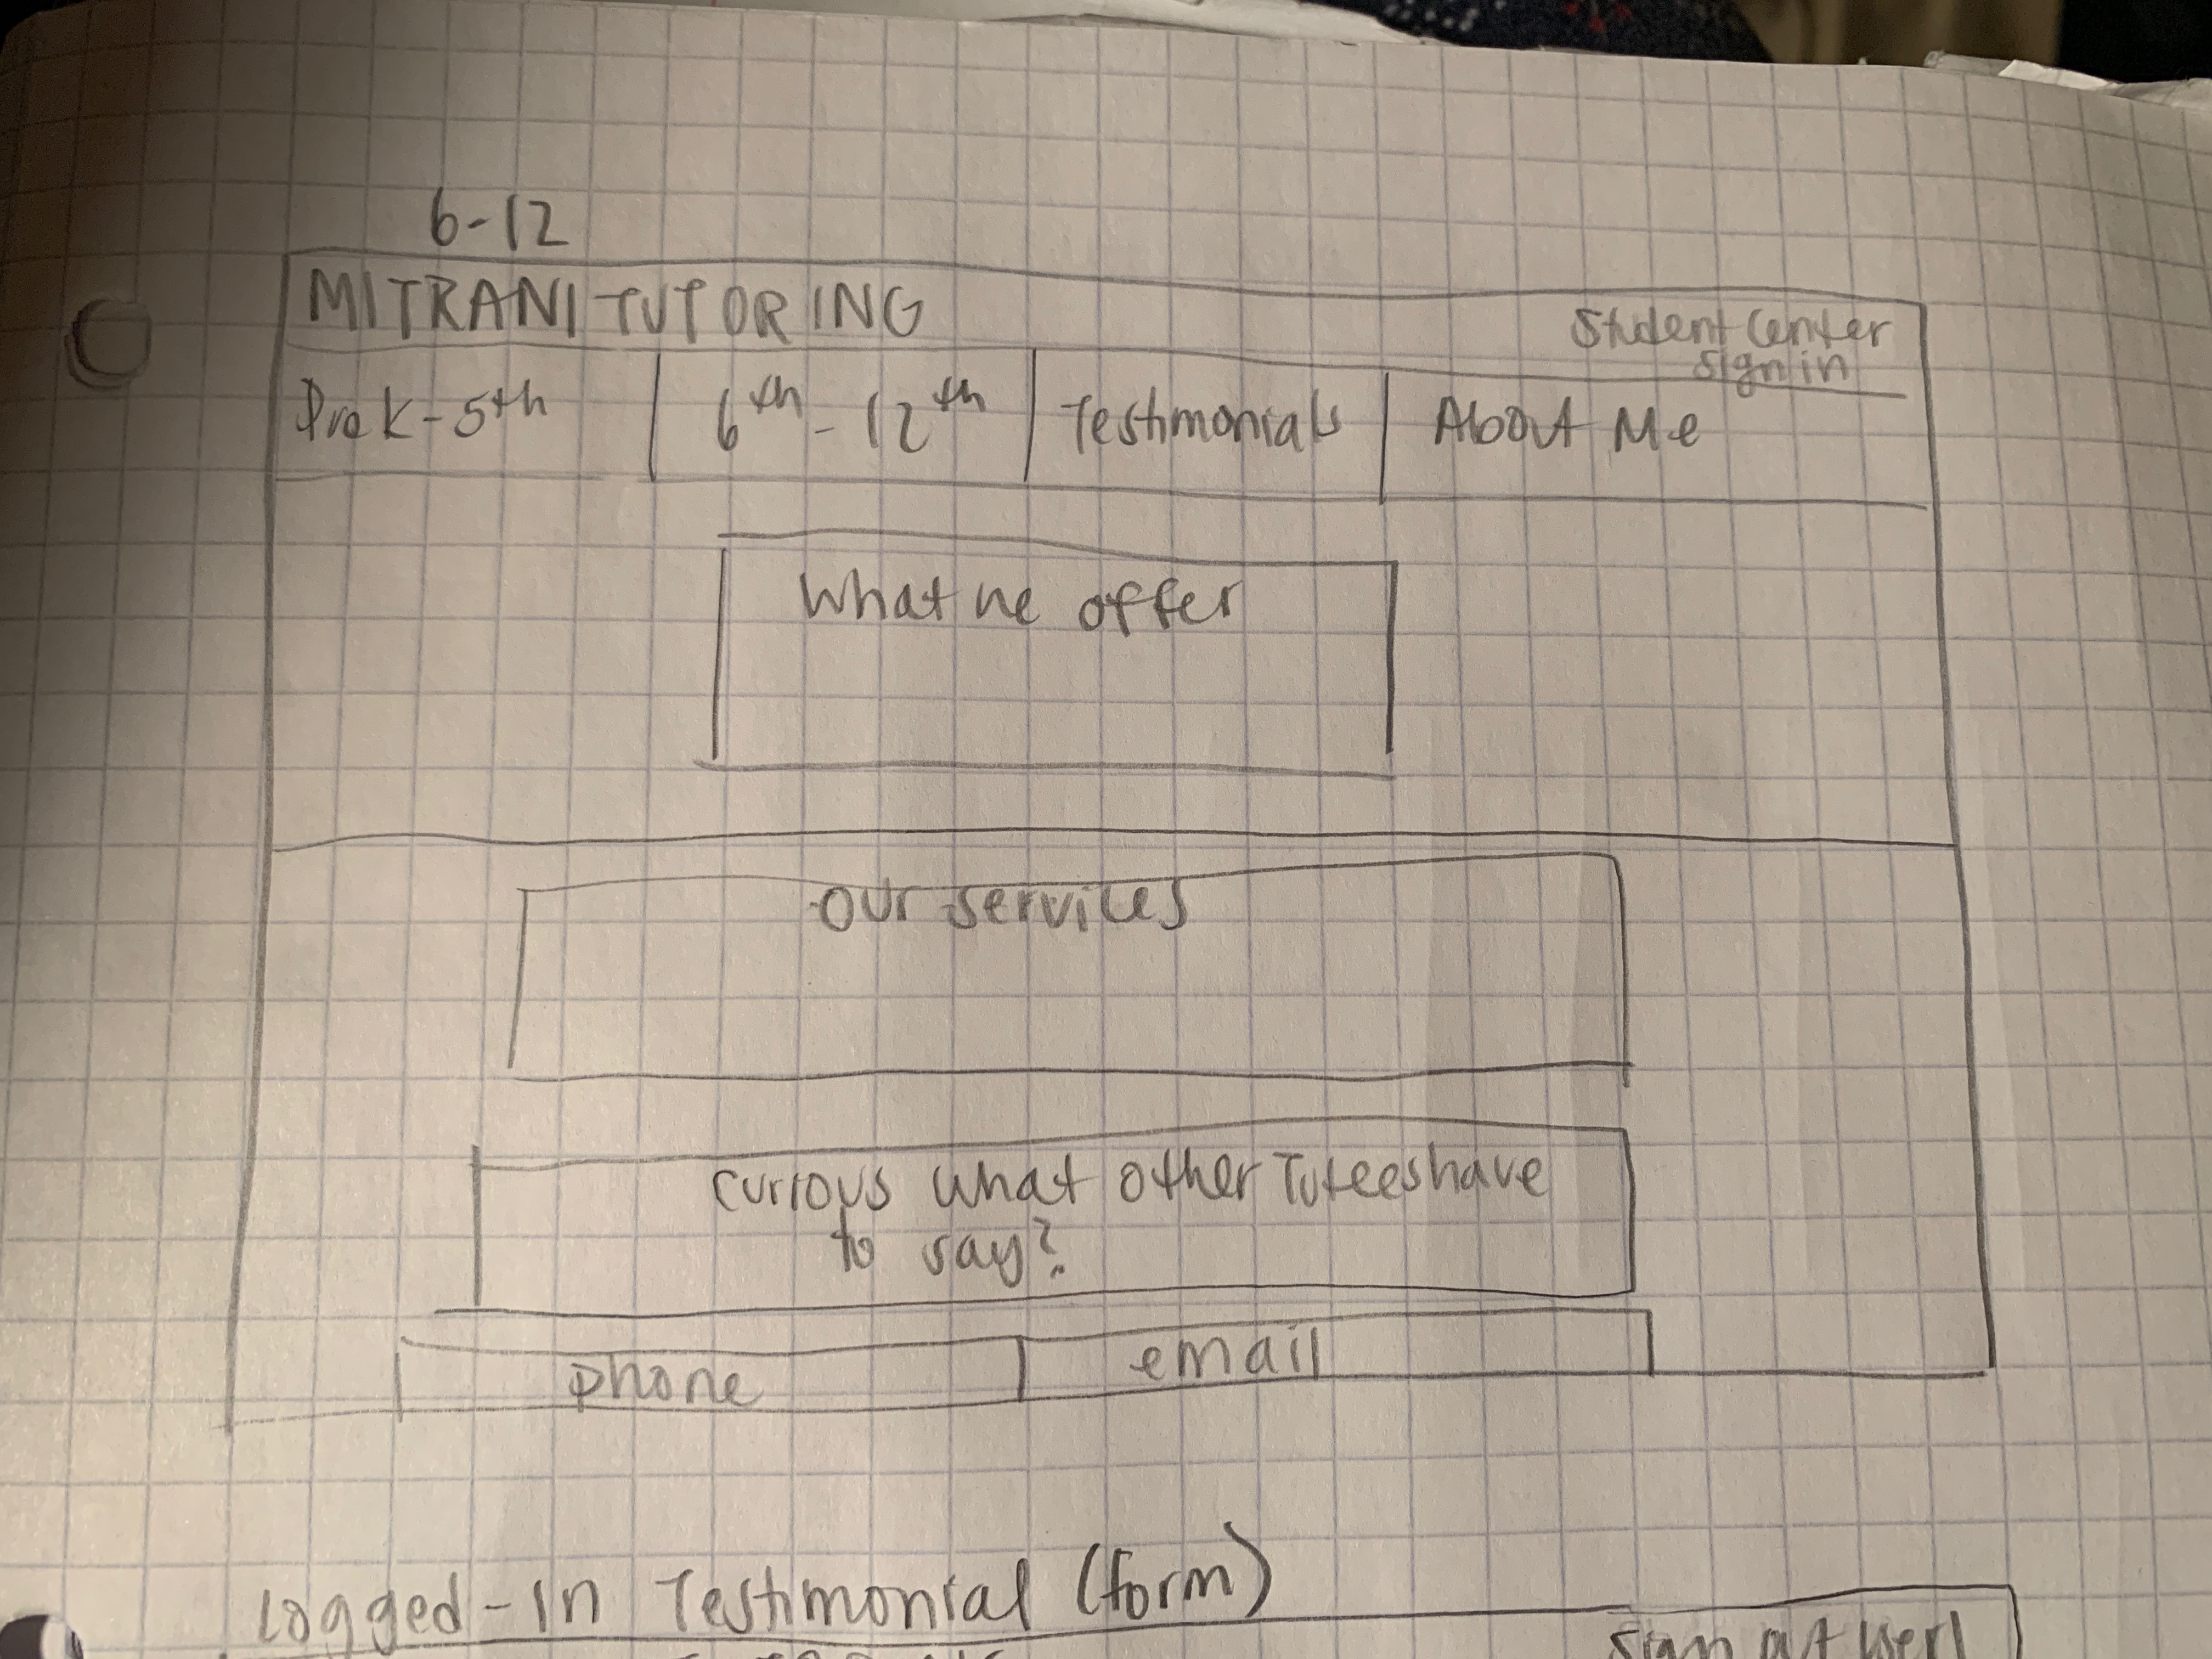 6-12
MITRANI TUTORING
Student Center
Sign in
Prek-5th 6th-12th Testimonials About Me
What we offer
our services
curious what other Tutees have
to say?
phone email
Logged-In Testimonial (form)
Sign out